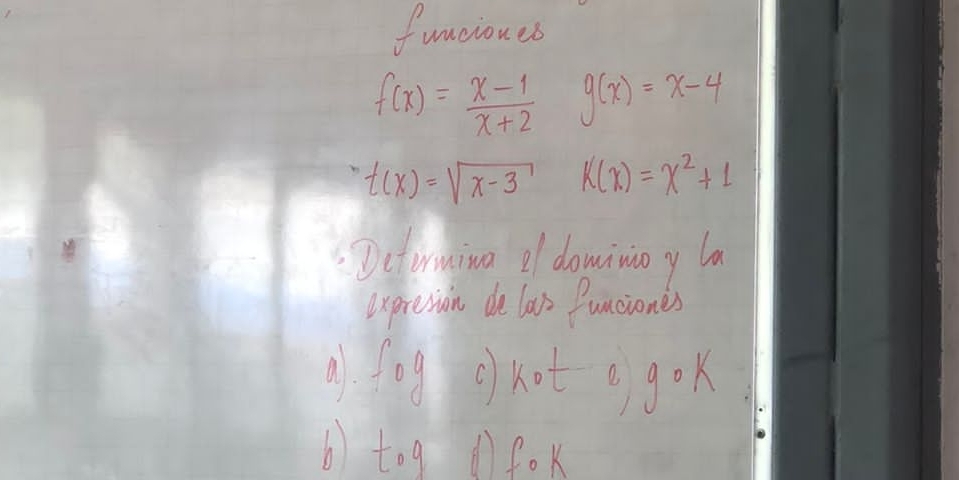 funciones
f(x) = x-1/x+2 g(x) = x-4
t(x) = √x-3 K(x) = x²+1
· Determina el dominio y la
expresión de las funciones
a). f∘g c) K∘t e) g∘K
b) t∘g d) f∘K